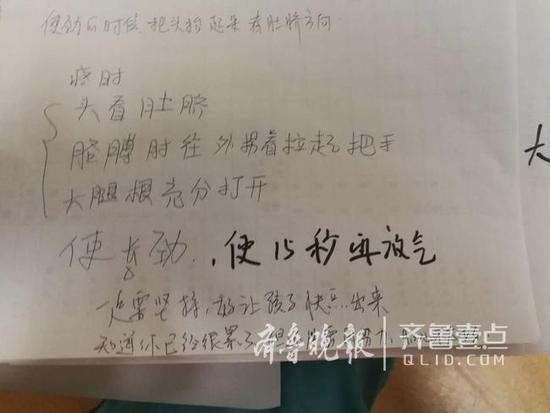 使劲的时候,把头抬起来看肚脐方向
疼时
头看肚脐
胳膊肘往外拐着拉起把手
大腿根充分打开
使长劲,使15秒再放气
一定要坚持,好让孩子快点出来
知道你已经很累了
大
齐鲁晚报 齐鲁壹点
QLID.COM